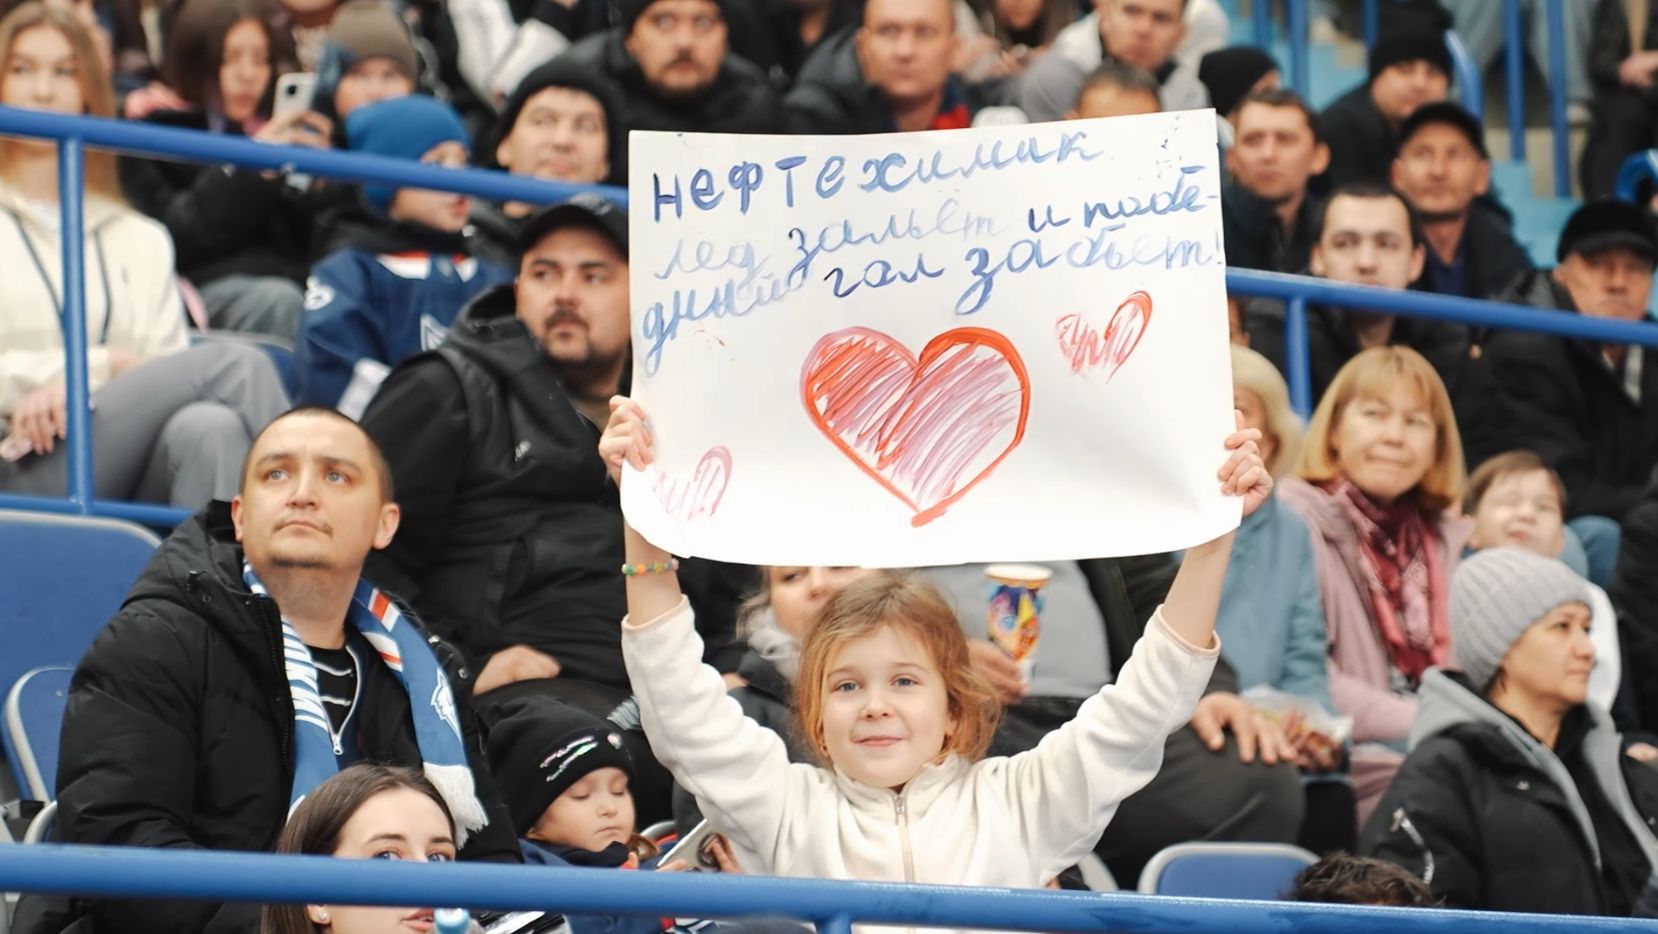 нефтехимик
лед зальёт и побе-
дный гол забьет!